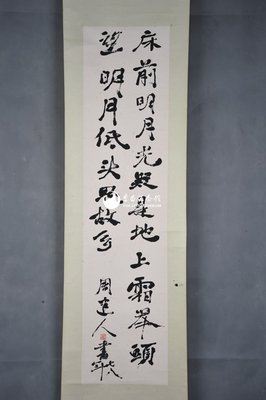 床前明月光疑是地上霜举頭
望明月低头思故乡
周建人書